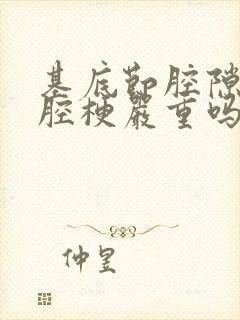 基底节腔隙
腔梗严重吗
仲昱